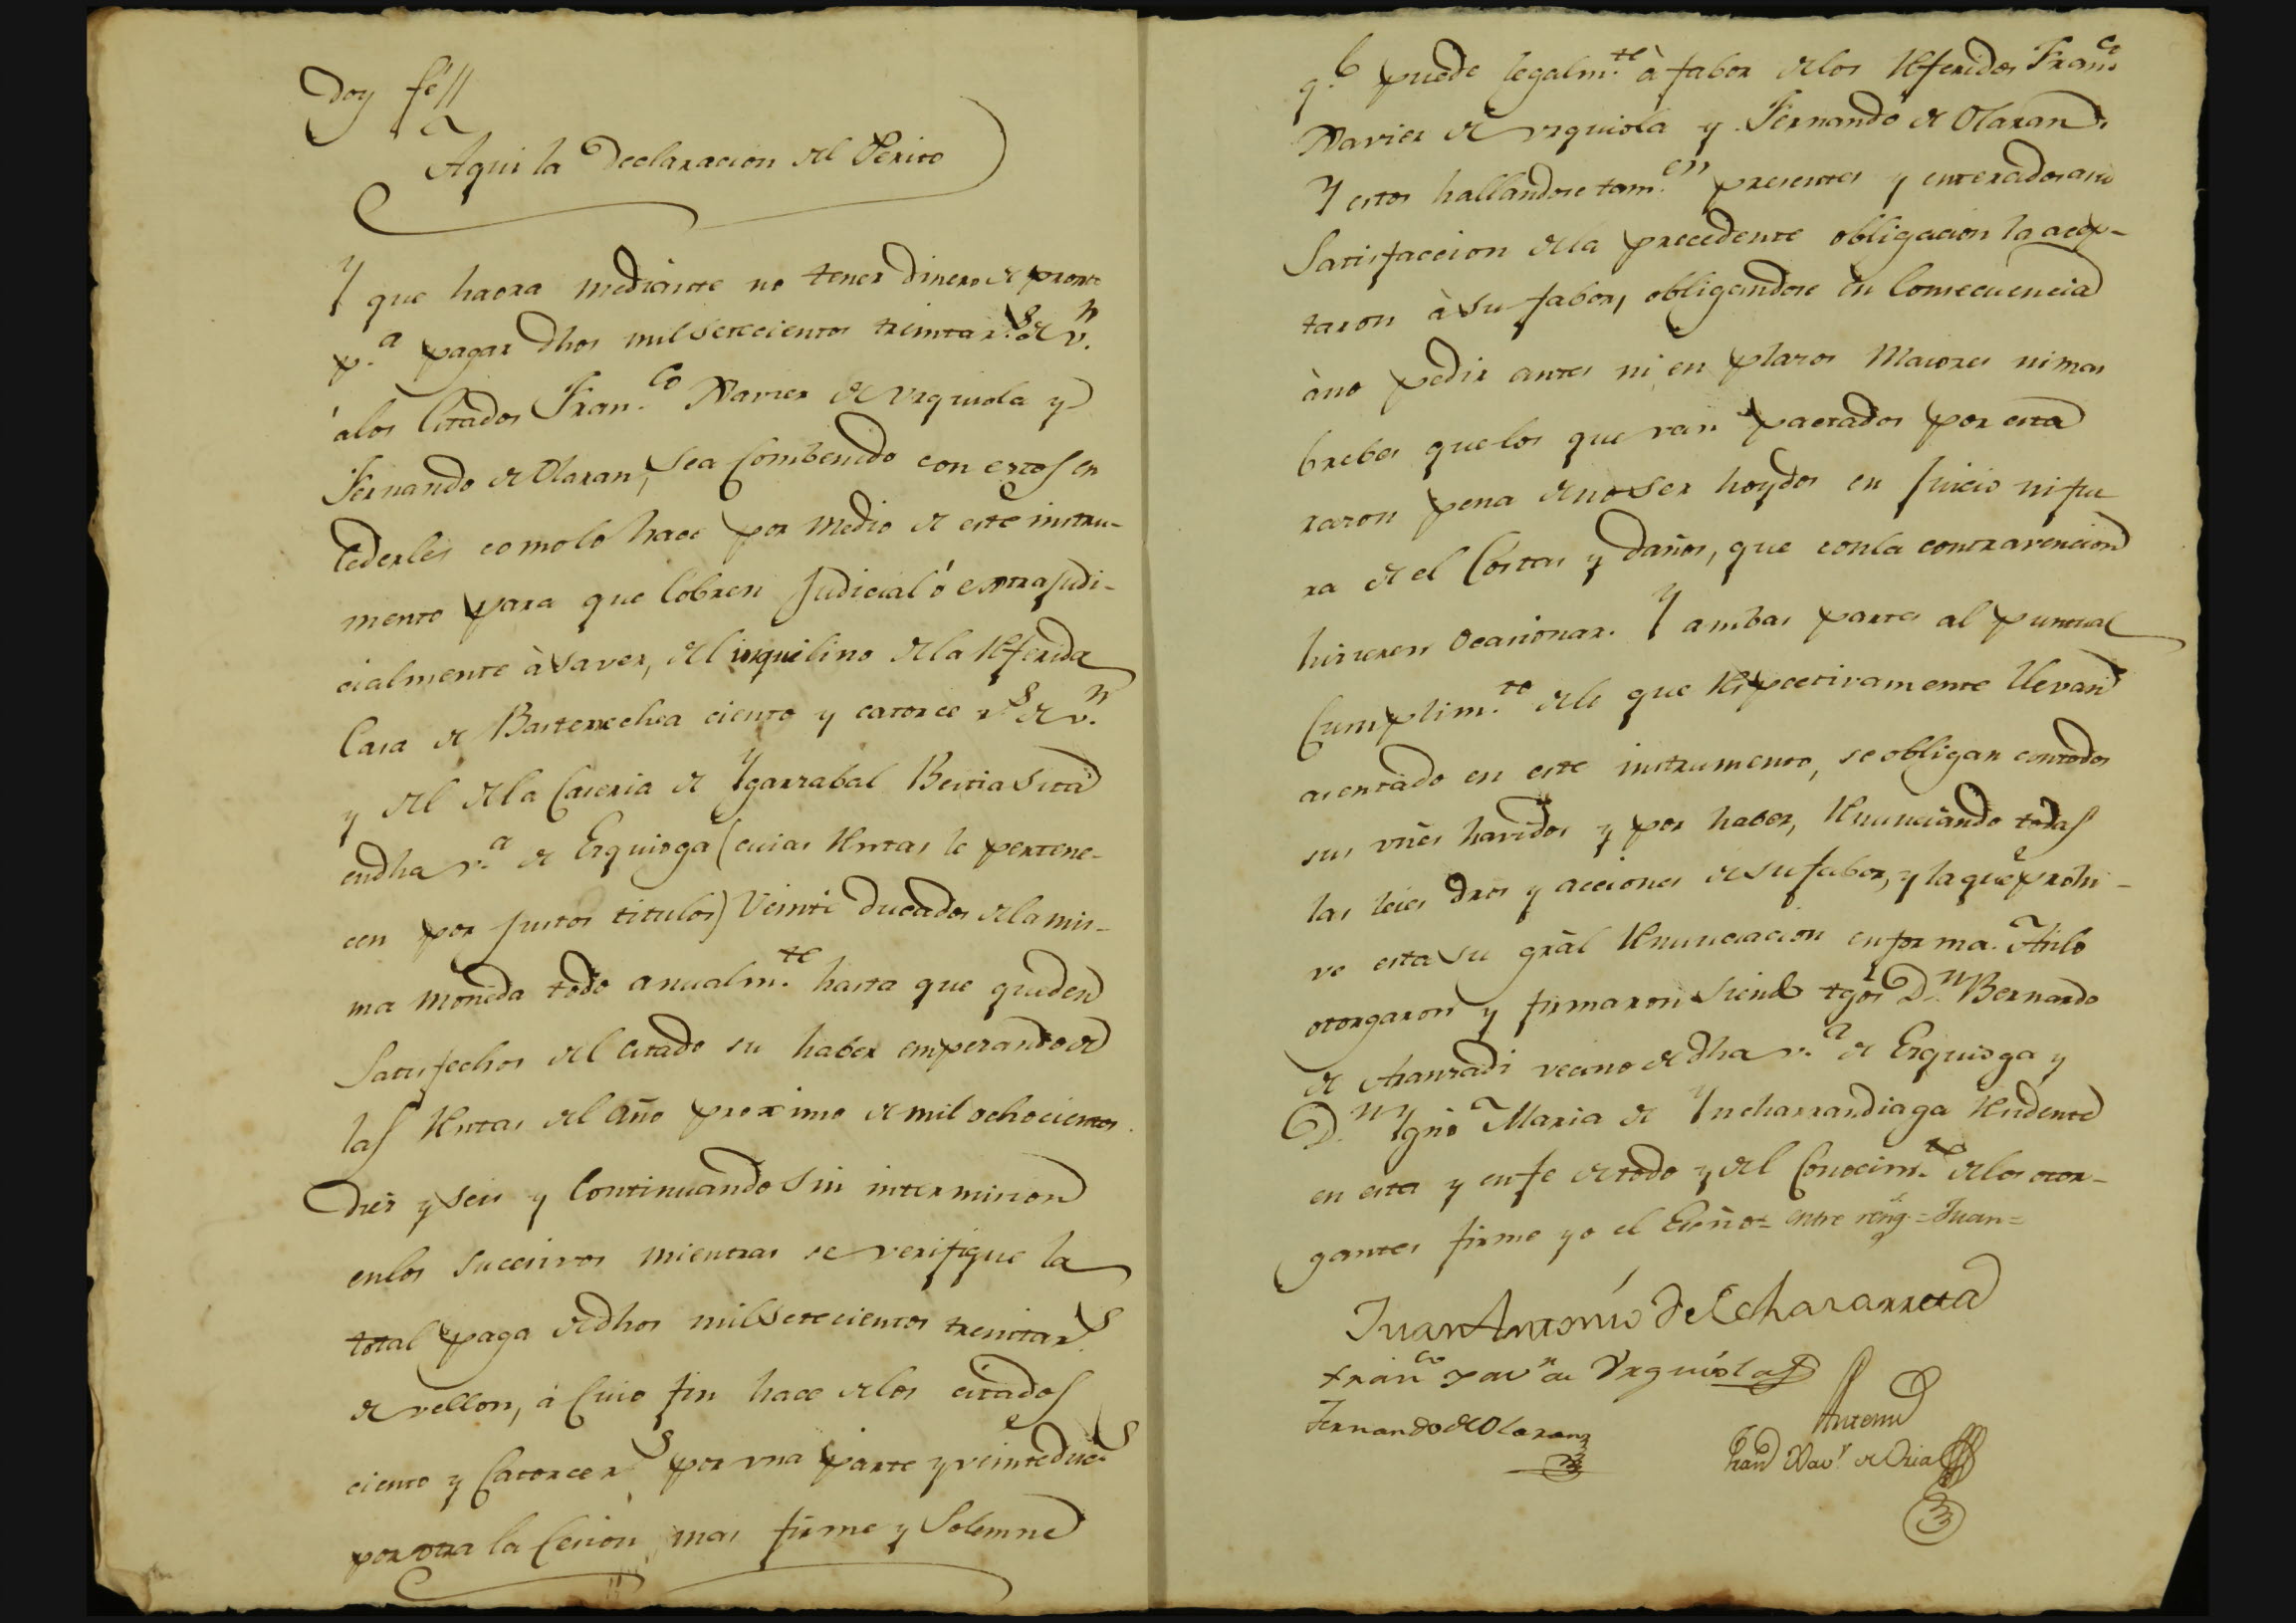 Doy fé//
Aqui la Declaracion del Perito
Y que haora mediante no tener dinero de pronto
p.a pagar dhos mil setecientos treinta r.s de v.n
á los Citados Fran.co Xavier de Vrquiola y
Fernando de Olaran, sea Combenido con estos en
Cederles como lo hace por medio de este instru-
mento para que Cobren Judicial ó extrajudi-
cialmente à saver, del inquilino de la Referida
Casa de Basterrechea ciento y catorce r.s de v.n
y del de la Caseria de Ygarzabal Bestia sita
en dha v.a de Ezquioga (cuias Rentas le pertene-
cen por justos titulos) Veinte ducados de la mis-
ma moneda todo anualm.te hasta que queden
Satisfechos del citado su haber empezando de
las Rentas del año proximo de mil ochocientos
diez y seis y Continuando sin intermision
en los sucesivos mientras se verifique la
total paga de dhos mil setecientos treinta r.s
de vellon, à Cuio fin hace de los citados
ciento y Catorce r.s por vna parte y veinte duc.s
por otra la Cesion mas firme y Solemne
q.e puede legalm.te à fabor de los Referidos Fran.co
Xavier de Vrquiola y Fernando de Olaran.
Y estos hallandose tam.en presentes y enterados a su
Satisfaccion de la precedente obligacion la acep-
taron à su fabor, obligandose en Consecuencia
à no pedir antes ni en plazos Maiores ni mas
brebes que los que van pactados por esta
razon pena de no ser hoydos en Juicio ni fue
ra de el Costas y daños, que con la contravencion
hizieren Ocasionar. Y ambas partes al puntual
Cumplim.to de lo que Respectivamente llevan
asentado en este instrumento, se obligan con todos
sus vnes havidos y por haber, Renunciando todas
las leies dros y acciones de su fabor, y la que prohi-
ve esta su gral Renunciacion en forma. Asi lo
otorgaron y firmaron siendo tgos D.n Bernardo
de Aranzadi vecino de dha v.a de Ezquioga y
D.n Ygno Maria de Yncharrandiaga Residente
en esta y en fe de todo y del Conocim.to de los otor-
gantes firme yo el Esno = entre reng.s = Juan =
Juan Antonio de Echazarreta
Fran.co Xav.r de Vrquiola
Fernando de Olaran
Antemi
Fran.co Xav.r de Oria